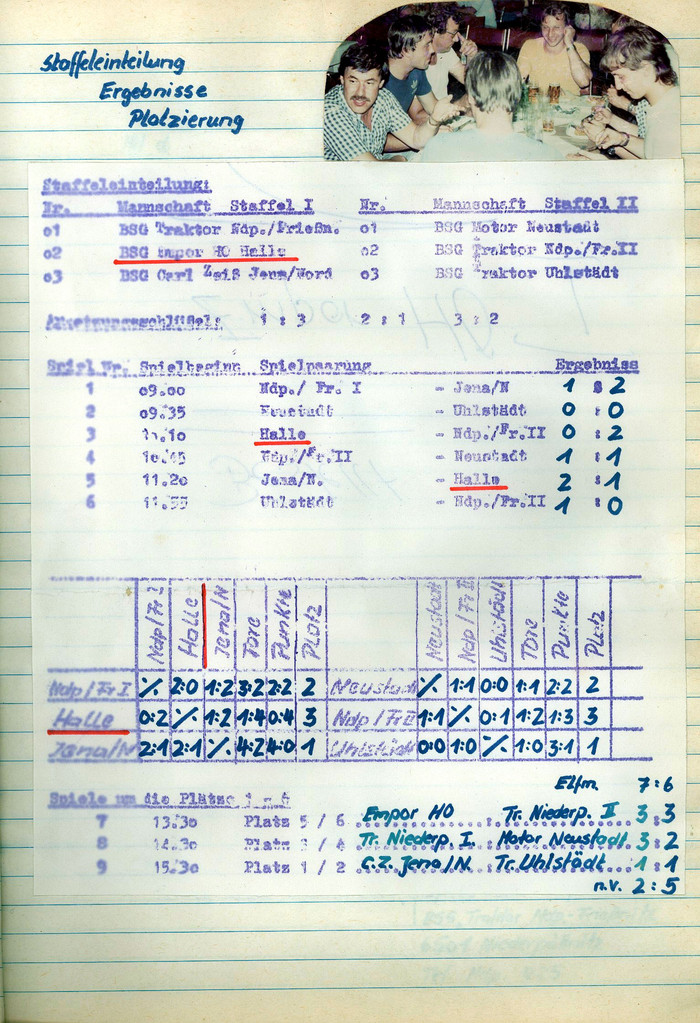 Staffeleinteilung
Ergebnisse
Platzierung
Staffeleinteilung:
Nr. Mannschaft Staffel I Nr. Mannschaft Staffel II
o1 BSG Traktor Ndp./Frießn. o1 BSG Motor Neustadt
o2 BSG Empor HO Halle o2 BSG Traktor Ndp./Fr.II
o3 BSG Carl Zeiß Jena/Nord o3 BSG Traktor Uhlstädt
Ansetzungsschlüßel: 1 : 3 2 : 1 3 : 2
Spiel Nr. Spielbeginn Spielpaarung Ergebniss
1 o9.oo Ndp./ Fr. I - Jena/N 1 : 2
2 o9.35 Neustadt - Uhlstädt 0 : 0
3 1o.1o Halle - Ndp./Fr.II 0 : 2
4 1o.45 Ndp./Fr.II - Neustadt 1 : 1
5 11.2o Jena/N. - Halle 2 : 1
6 11.55 Uhlstädt - Ndp./Fr.II 1 : 0
Ndp/Fr I Halle Jena/N Tore Punkte Platz Neustadt Ndp/Fr II Uhlstädt Tore Punkte Platz
Ndp/Fr I % 2:0 1:2 3:2 2:2 2 Neustadt % 1:1 0:0 1:1 2:2 2
Halle 0:2 % 1:2 1:4 0:4 3 Ndp/Fr II 1:1 % 0:1 1:2 1:3 3
Jena/N 2:1 2:1 % 4:2 4:0 1 Uhlstädt 0:0 1:0 % 1:0 3:1 1
Elfm. 7:6
Spiele um die Plätze 1 - 6
7 13.3o Platz 5 / 6 Empor HO : Tr. Niederp. II 3:3
8 14.3o Platz 3 / 4 Tr. Niederp. I. : Motor Neustadt 3:2
9 15.3o Platz 1 / 2 C.Z. Jena/N. : Tr. Uhlstädt 1:1
n.V. 2:5